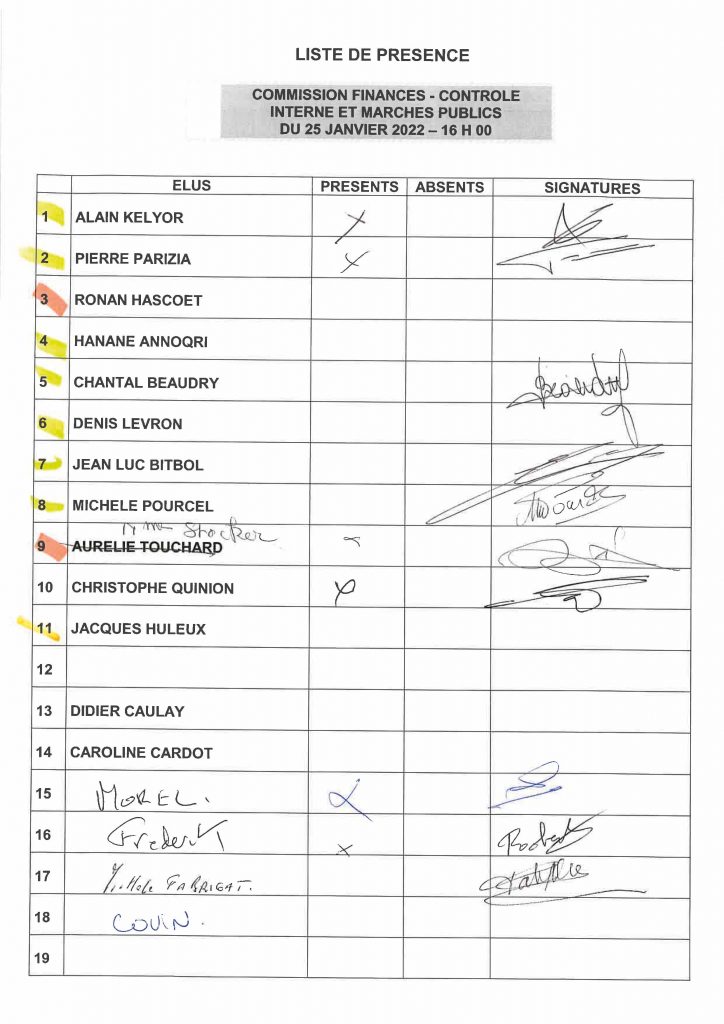 LISTE DE PRESENCE
COMMISSION FINANCES - CONTROLE
INTERNE ET MARCHES PUBLICS
DU 25 JANVIER 2022 – 16 H 00
ELUS PRESENTS ABSENTS SIGNATURES
1 ALAIN KELYOR X
2 PIERRE PARIZIA X
3 RONAN HASCOET
4 HANANE ANNOQRI
5 CHANTAL BEAUDRY
6 DENIS LEVRON
7 JEAN LUC BITBOL
8 MICHELE POURCEL
Mme Stocker
9 AURELIE TOUCHARD
10 CHRISTOPHE QUINION X
11 JACQUES HULEUX
12
13 DIDIER CAULAY
14 CAROLINE CARDOT
15 MOREL.
16 X
17 FABRIGAT.
18 COUIN.
19